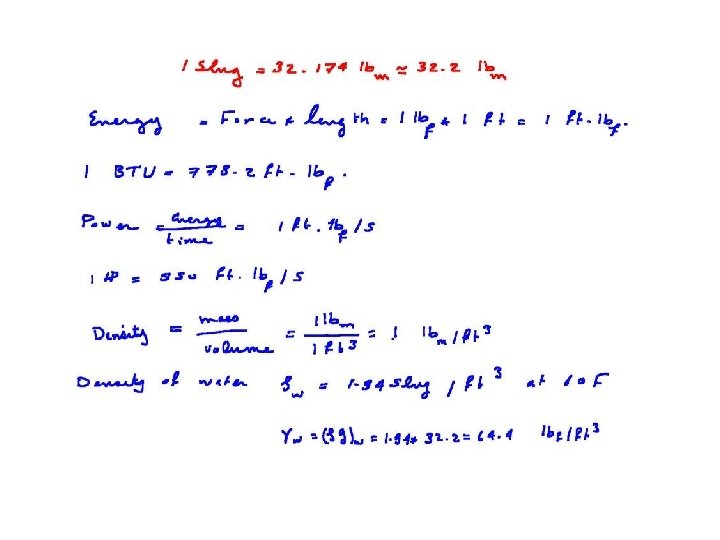 1 Slug = 32.174 lbm ≃ 32.2 lbm
Energy = Force * length = 1 lbf * 1 ft = 1 ft-lbf.
1 BTU = 778.2 ft-lbf.
Power = energy/time = 1 ft.lbf/s
1 HP = 550 ft.lbf/s
Density = mass/volume = 1 lbm/1 ft³ = 1 lbm/ft³
Density of water ρw = 1.94 slug/ft³ at 60F
γw = (ρg)w = 1.94* 32.2 = 64.4 lbf/ft³